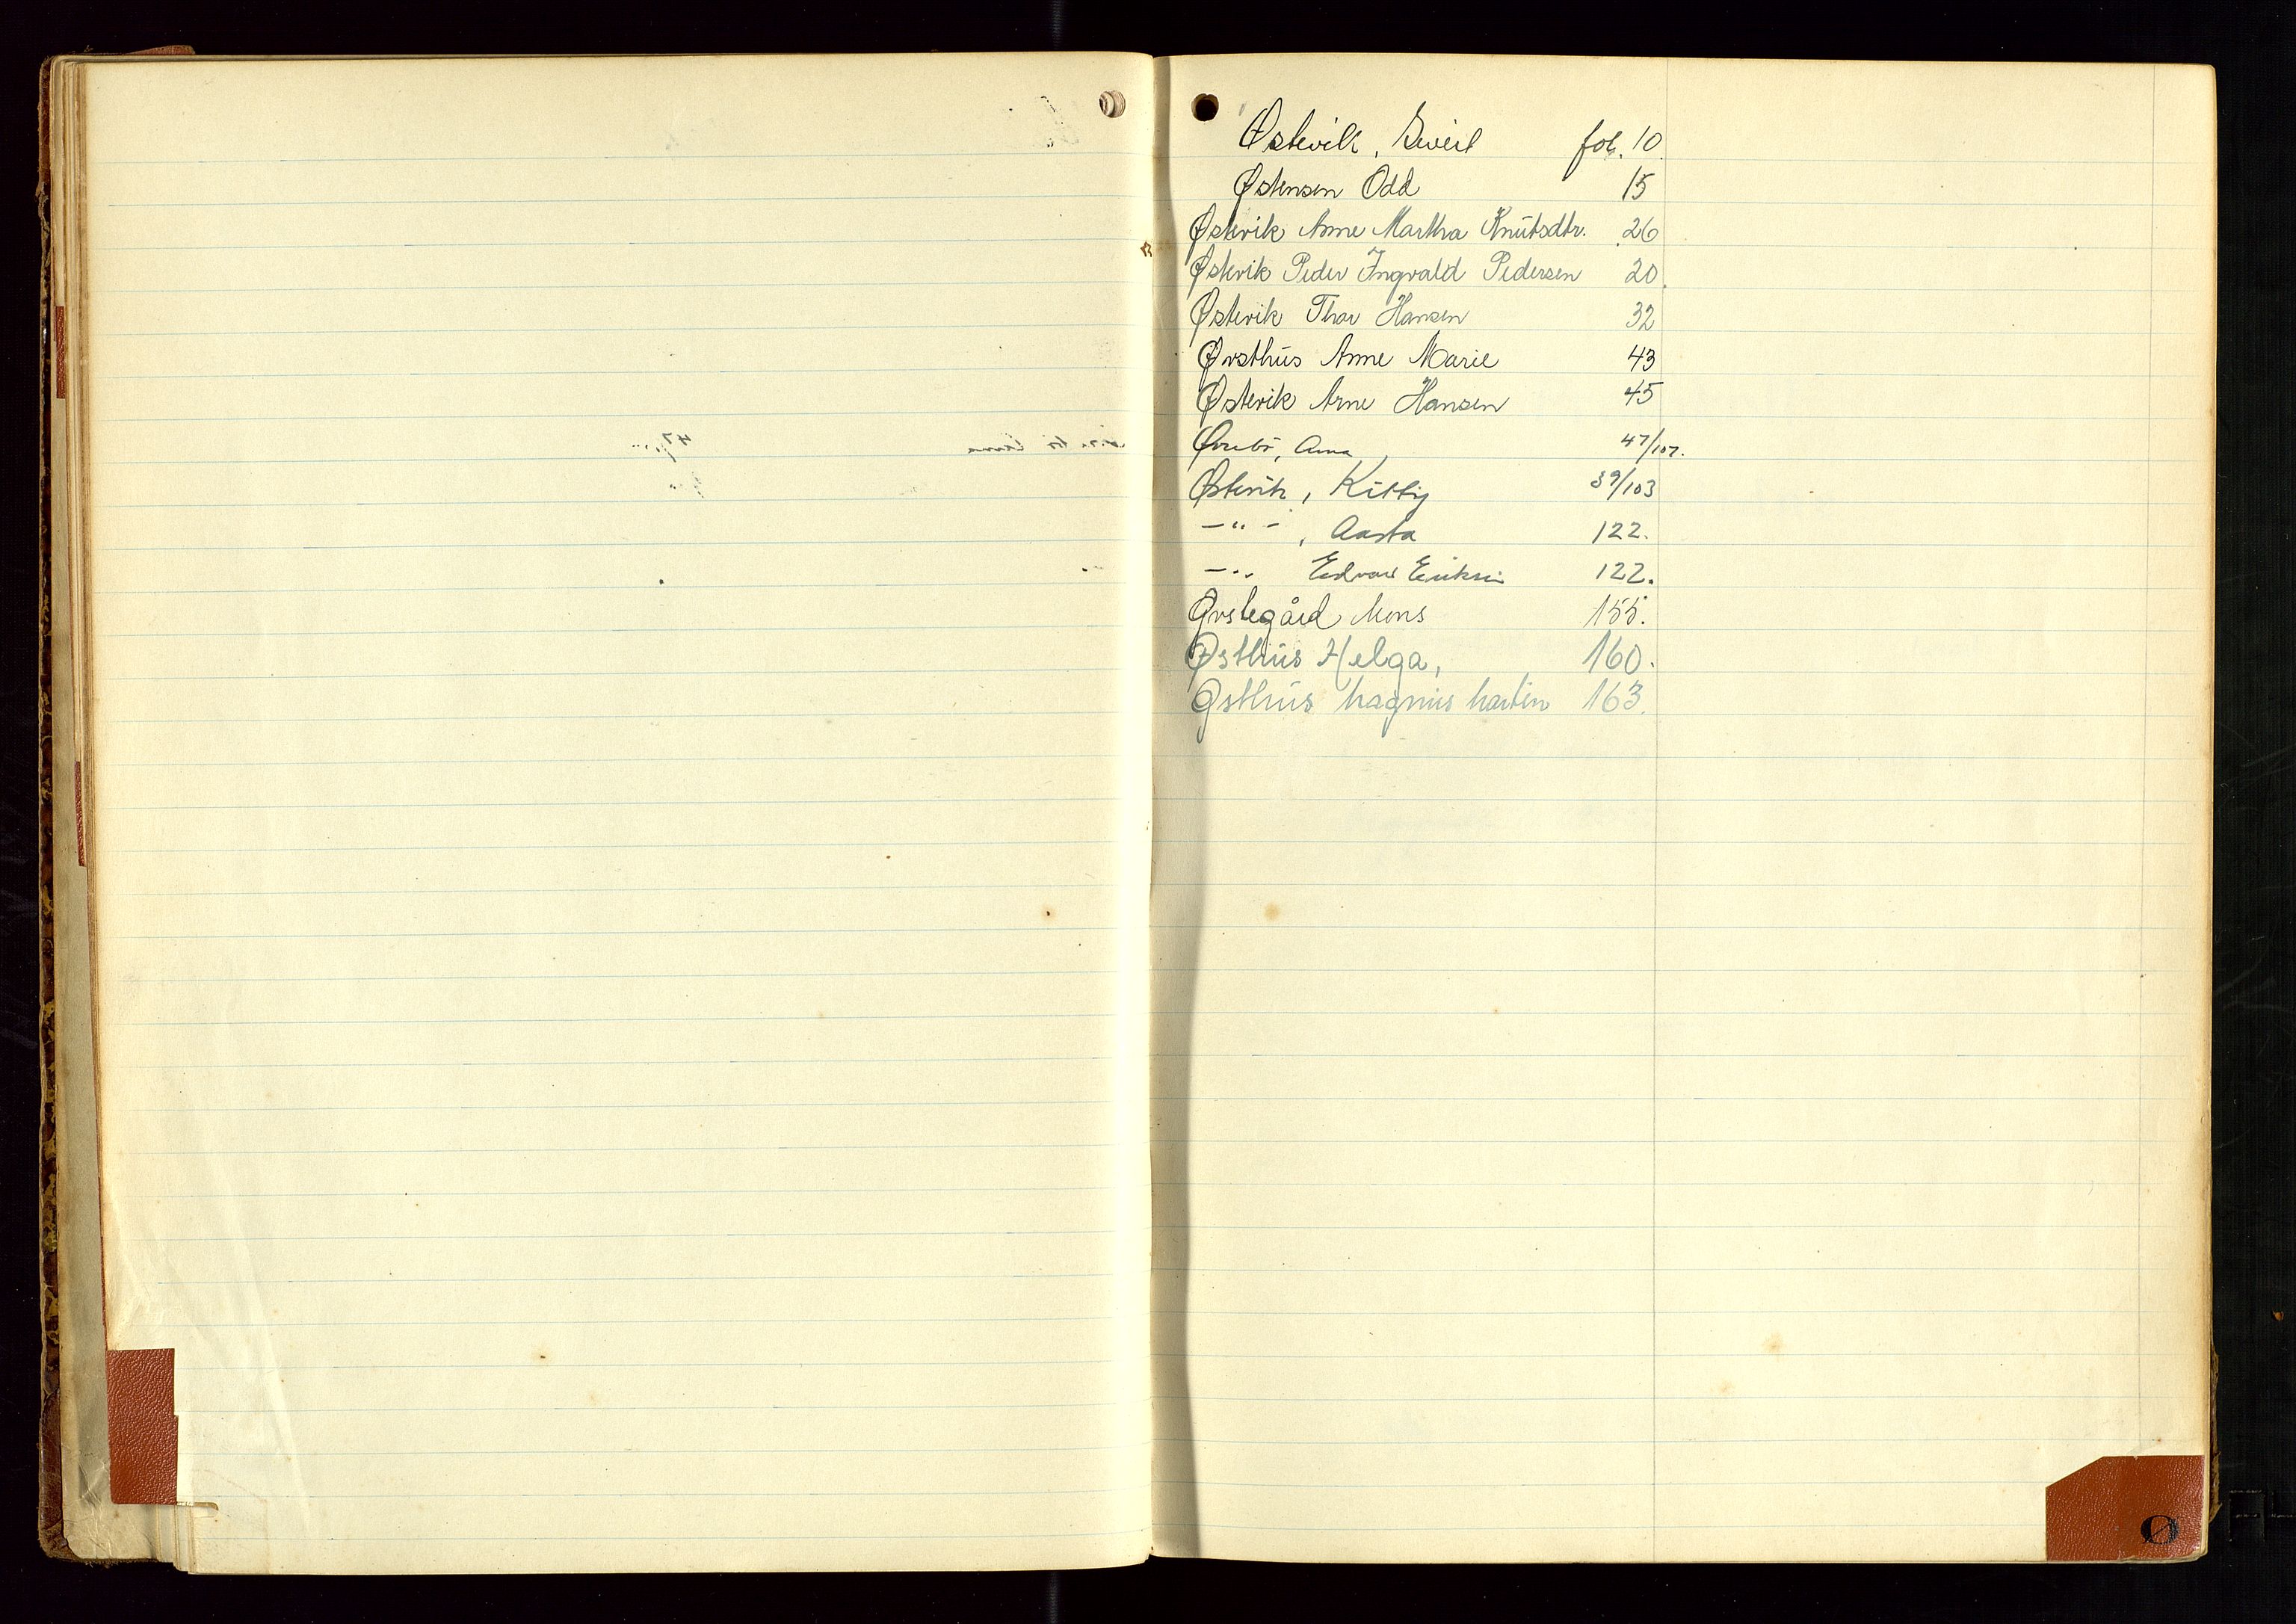 Østevik, Sverd fol. 10.
Østensen Odd 15
Østevik Anne Martha Knutsdtr. 26
Østevik Peder Ingvald Pedersen 20.
Østevik Thor Hansen 32
Ørsthus Anne Marie 43
Østevik Arne Hansen 45
Øvrebö, Anna 47/107.
Østevik, Kitty 39/103
-"-, Aasta 122.
-"- Edvard Eriksen 122.
Øvstegård Mons 155.
Østhus Helga, 160.
Østhus Magnus Martin 163.
Ø